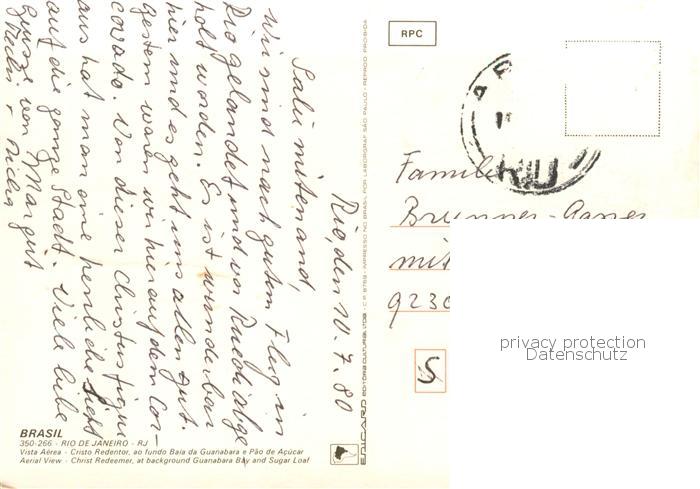 Rio, den 10.7.80
Salü mitenand,
Wir sind nach gutem Flug in
Rio gelandet und von Ruedi abge
holt worden. Es ist wunderbar
hier und es geht uns allen gut.
gestern waren wir hier auf dem Cor-
covado. Von dieser Christusfigur
aus hat man eine herrliche Sicht
auf die ganze Stadt. Viele liebe
grüsse von Margrit
BRASIL
350-266 - RIO DE JANEIRO - RJ
Vista Aérea - Cristo Redentor, ao fundo Baía da Guanabara e Pão de Açúcar
Aerial View - Christ Redeemer, at background Guanabara Bay and Sugar Loaf
EDICARD EDITORA CULTURAL LTDA - C.P. 8759 - IMPRESSO NO BRASIL POR LABORGRAF SÃO PAULO - REPROD. PROIBIDA
RPC
RIO
Familie
Brunner-
mit
9230
S
privacy protection
Datenschutz